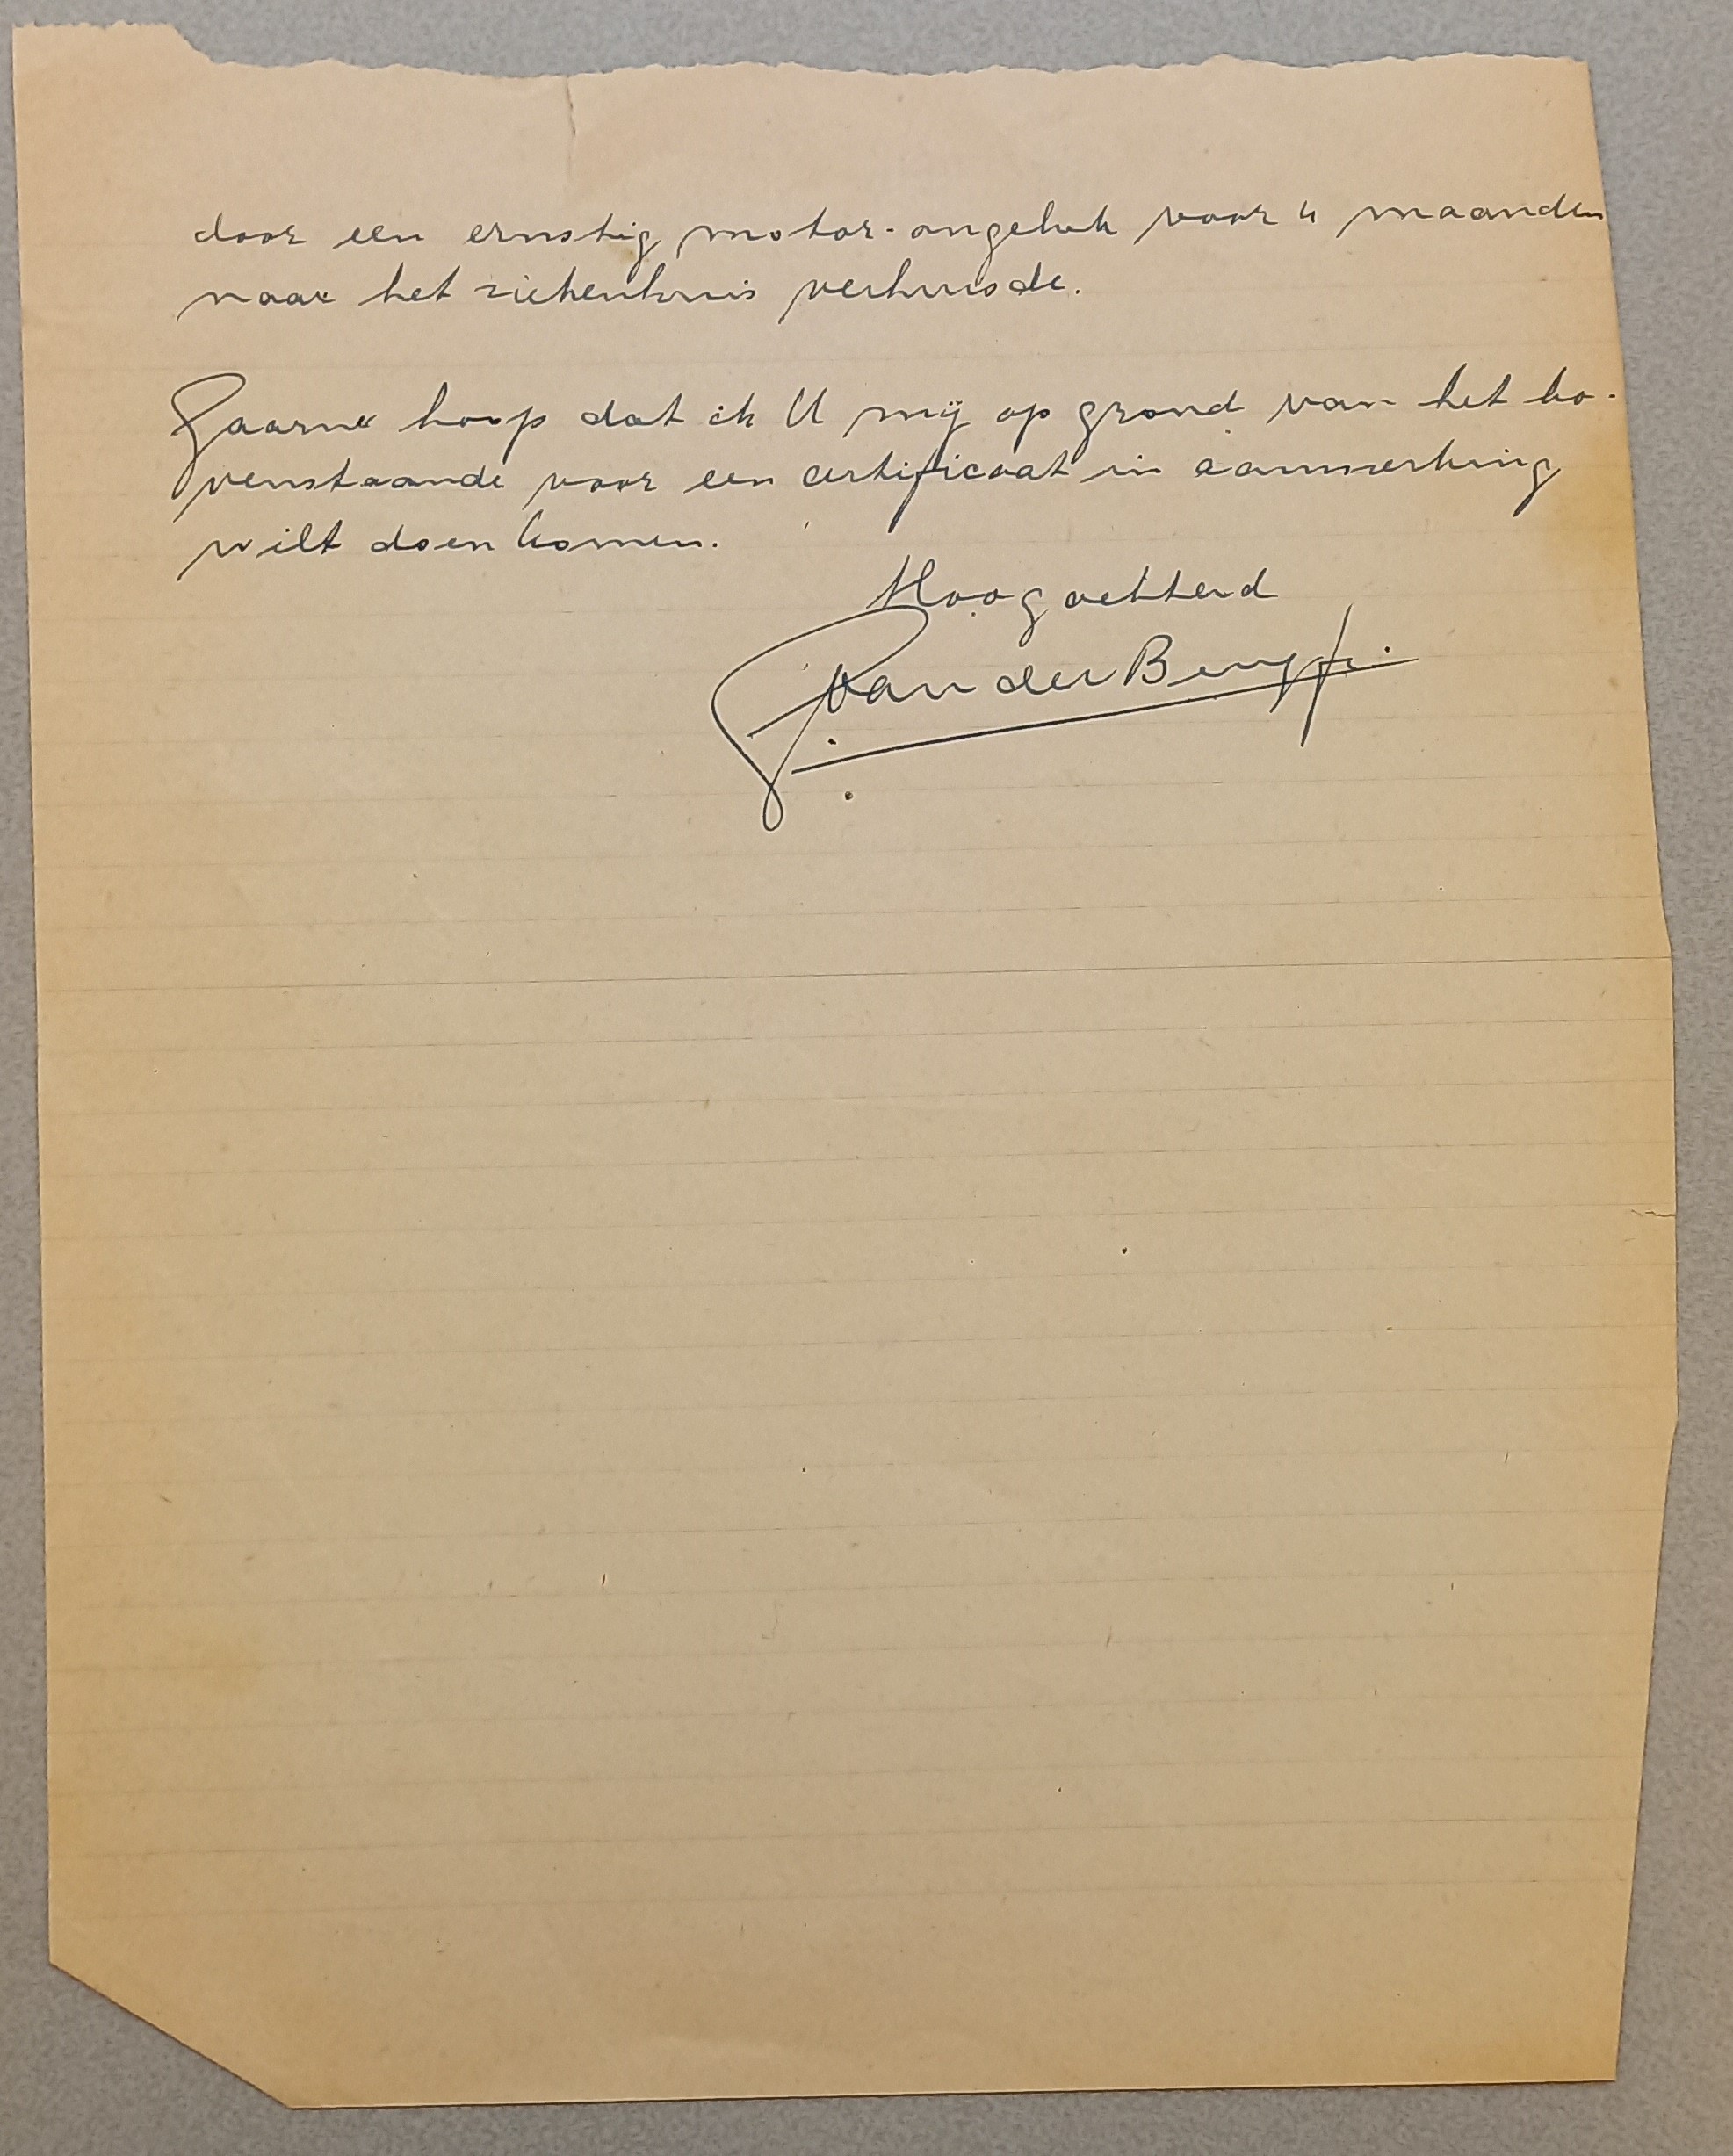 door een ernstig motor-ongeluk voor 4 maanden
naar het ziekenhuis verhuisde.
Gaarne hoop dat ik U mij op grond van het bo-
venstaande voor een certificaat in aanmerking
wilt doen komen.
Hoogachtend
van der Berg jr.